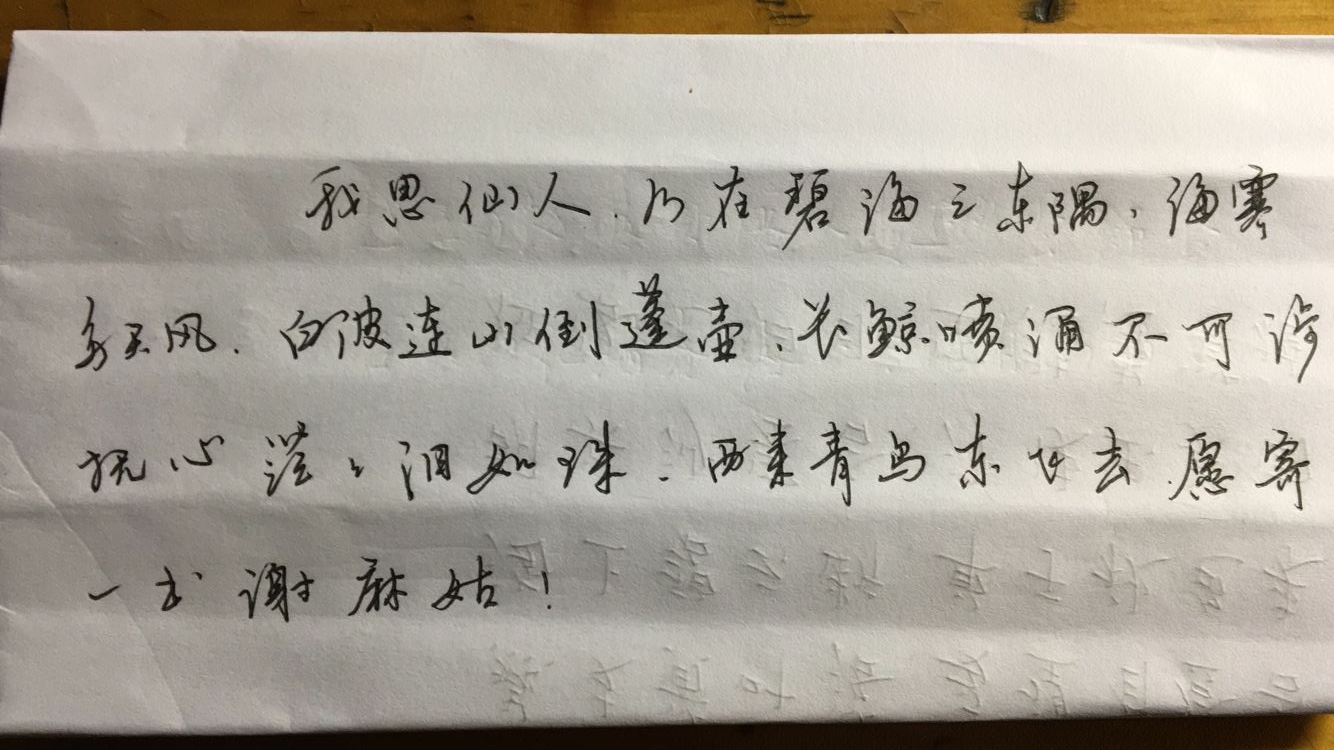 我思仙人,乃在碧海之东隅,海寒
多天风,白波连山倒蓬壶,长鲸喷涌不可涉
抚心茫々泪如珠.西来青鸟东飞去,愿寄
一书谢麻姑!